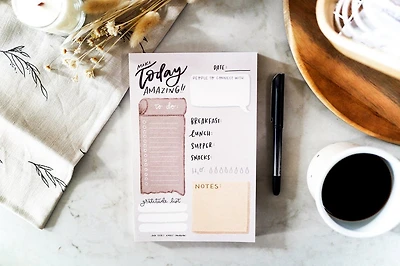 make
today
AMAZING!!
DATE:
PEOPLE TO CONNECT WITH
to do
BREAKFAST:
LUNCH:
SUPPER:
SNACKS:
H2O:
NOTES:
gratitude list